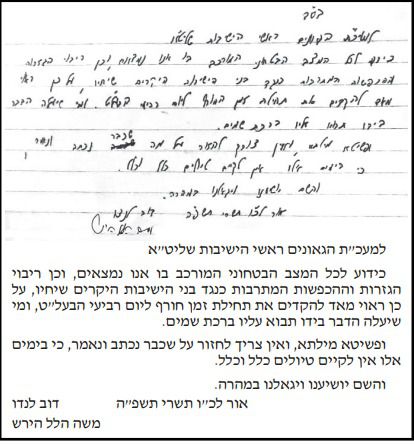 בס"ד
למעכ"ת הגאונים ראשי הישיבות שליט"א
כידוע לכל המצב הבטחוני המורכב בו אנו נמצאים, וכן ריבוי הגזרות
וההכפשות המתרבות כנגד בני הישיבות היקרים שיחיו, על כן ראוי
מאד להקדים את תחילת זמן חורף ליום רביעי הבעל"ט, ומי שיעלה הדבר
בידו תבוא עליו ברכת שמים.
ופשיטא מילתא, ואין צריך לחזור על מה שכבר נכתב ונאמר,
כי בימים אלו אין לקיים טיולים כלל וכלל.
והשם יושיענו ויגאלנו במהרה.
אור לכ"ו תשרי תשפ"ה דוב לנדו
משה הלל הירש
למעכ"ת הגאונים ראשי הישיבות שליט"א
כידוע לכל המצב הבטחוני המורכב בו אנו נמצאים, וכן ריבוי
הגזרות וההכפשות המתרבות כנגד בני הישיבות היקרים שיחיו, על
כן ראוי מאד להקדים את תחילת זמן חורף ליום רביעי הבעל"ט, ומי
שיעלה הדבר בידו תבוא עליו ברכת שמים.
ופשיטא מילתא, ואין צריך לחזור על שכבר נכתב ונאמר, כי בימים
אלו אין לקיים טיולים כלל וכלל.
והשם יושיענו ויגאלנו במהרה.
אור לכ"ו תשרי תשפ"ה דוב לנדו
משה הלל הירש